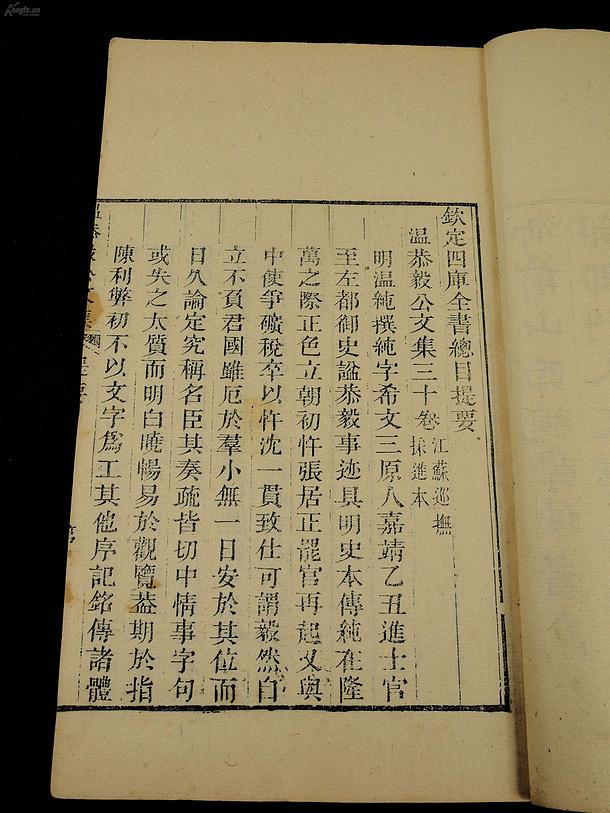 Kongfz.cn
欽定四庫全書總目提要
溫恭毅公文集三十卷 江蘇巡撫採進本
明溫純撰純字希文三原人嘉靖乙丑進士官
至左都御史諡恭毅事迹具明史本傳純在隆
萬之際正色立朝初忤張居正罷官再起又與
中使爭礦稅卒以忤沈一貫致仕可謂毅然自
立不負君國雖厄於羣小無一日安於其位而
日久論定究稱名臣其奏疏皆切中情事字句
或失之太質而明白曉暢易於觀覽葢期於指
陳利弊初不以文字爲工其他序記銘傳諸體